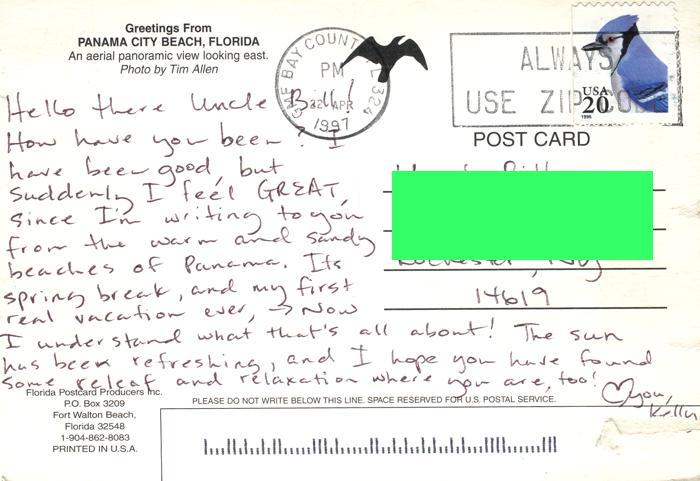 Greetings From
PANAMA CITY BEACH, FLORIDA
An aerial panoramic view looking east.
Photo by Tim Allen
BAY COUNTY FL 324
PM
22 APR
1997
ALWAYS
USE ZIP CODE
USA
20
1995
POST CARD
Hello there Uncle Bill!
How have you been? I
have been good, but
suddenly I feel GREAT,
since I'm writing to you
from the warm and sandy
beaches of Panama. Its
spring break, and my first
real vacation ever, → Now
I understand what that's all about! The sun
has been refreshing, and I hope you have found
some releaf and relaxation where you are, too!
♡you,
Kelly
Rochester, NY
14619
Florida Postcard Producers Inc.
P.O. Box 3209
Fort Walton Beach,
Florida 32548
1-904-862-8083
PRINTED IN U.S.A.
PLEASE DO NOT WRITE BELOW THIS LINE. SPACE RESERVED FOR U.S. POSTAL SERVICE.